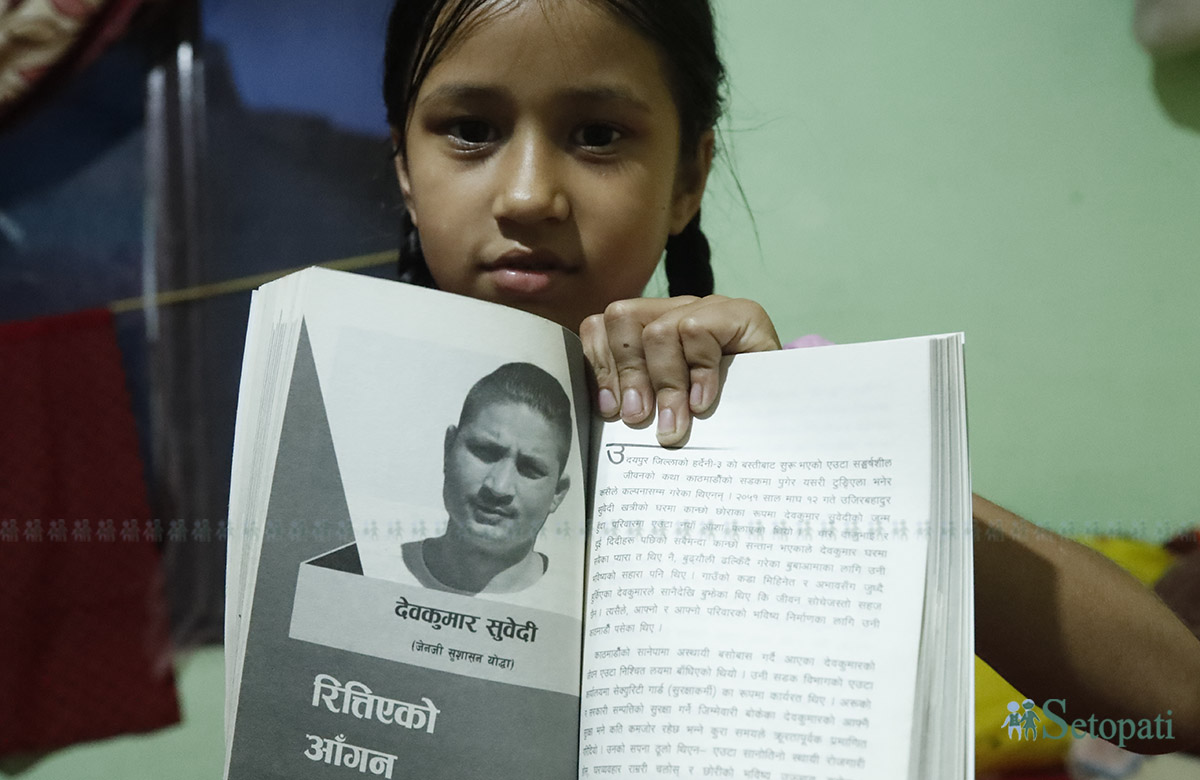 देवकुमार सुवेदी
(जेनजी सुशासन योद्धा)
रित्तिएको
आँगन
उदयपुर जिल्लाको हर्देनी-३ को बस्तीबाट सुरू भएको एउटा सङ्घर्षशील
जीवनको कथा काठमाडौंको सडकमा पुगेर यसरी टुङ्गिएला भनेर
कसैले कल्पनासम्म गरेका थिएनन् । २०५१ साल माघ १२ गते उजिरबहादुर
सुवेदी खत्रीको घरमा कान्छो छोराका रूपमा देवकुमार सुवेदीको जन्म
परिवारमा एउटा नयाँ आशा
दुई दिदीहरू पछिको सबैभन्दा कान्छो सन्तान भएकाले देवकुमार घरमा
प्यारा त थिए नै, बुढ्यौली ढल्किँदै गरेका बुबाआमाका लागि उनी
सहारा पनि थिए । गाउँको कडा मिहिनेत र अभावसँग जुध्दै
देवकुमारले सानैदेखि बुझेका थिए कि जीवन सोचेजस्तो सहज
। त्यसैले, आफ्नो र आफ्नो परिवारको भविष्य निर्माणका लागि उनी
पसेका थिए ।
काठमाडौंको सानेपामा अस्थायी बसोबास गर्दै आएका देवकुमारको
एउटा निश्चित लयमा बाँधिएको थियो । उनी सडक विभागको एउटा
सेक्युरिटी गार्ड (सुरक्षाकर्मी) का रूपमा कार्यरत थिए । अरूको
र सरकारी सम्पत्तिको सुरक्षा गर्ने जिम्मेवारी बोकेका देवकुमारको आफ्नै
भने कति कमजोर रहेछ भन्ने कुरा समयले क्रूरतापूर्वक प्रमाणित
। उनको सपना ठूलो थिएन– एउटा सानोतिनो स्थायी रोजगारी
घरव्यवहार राम्ररी चलोस् र छोरीको भविष्य
Setopati